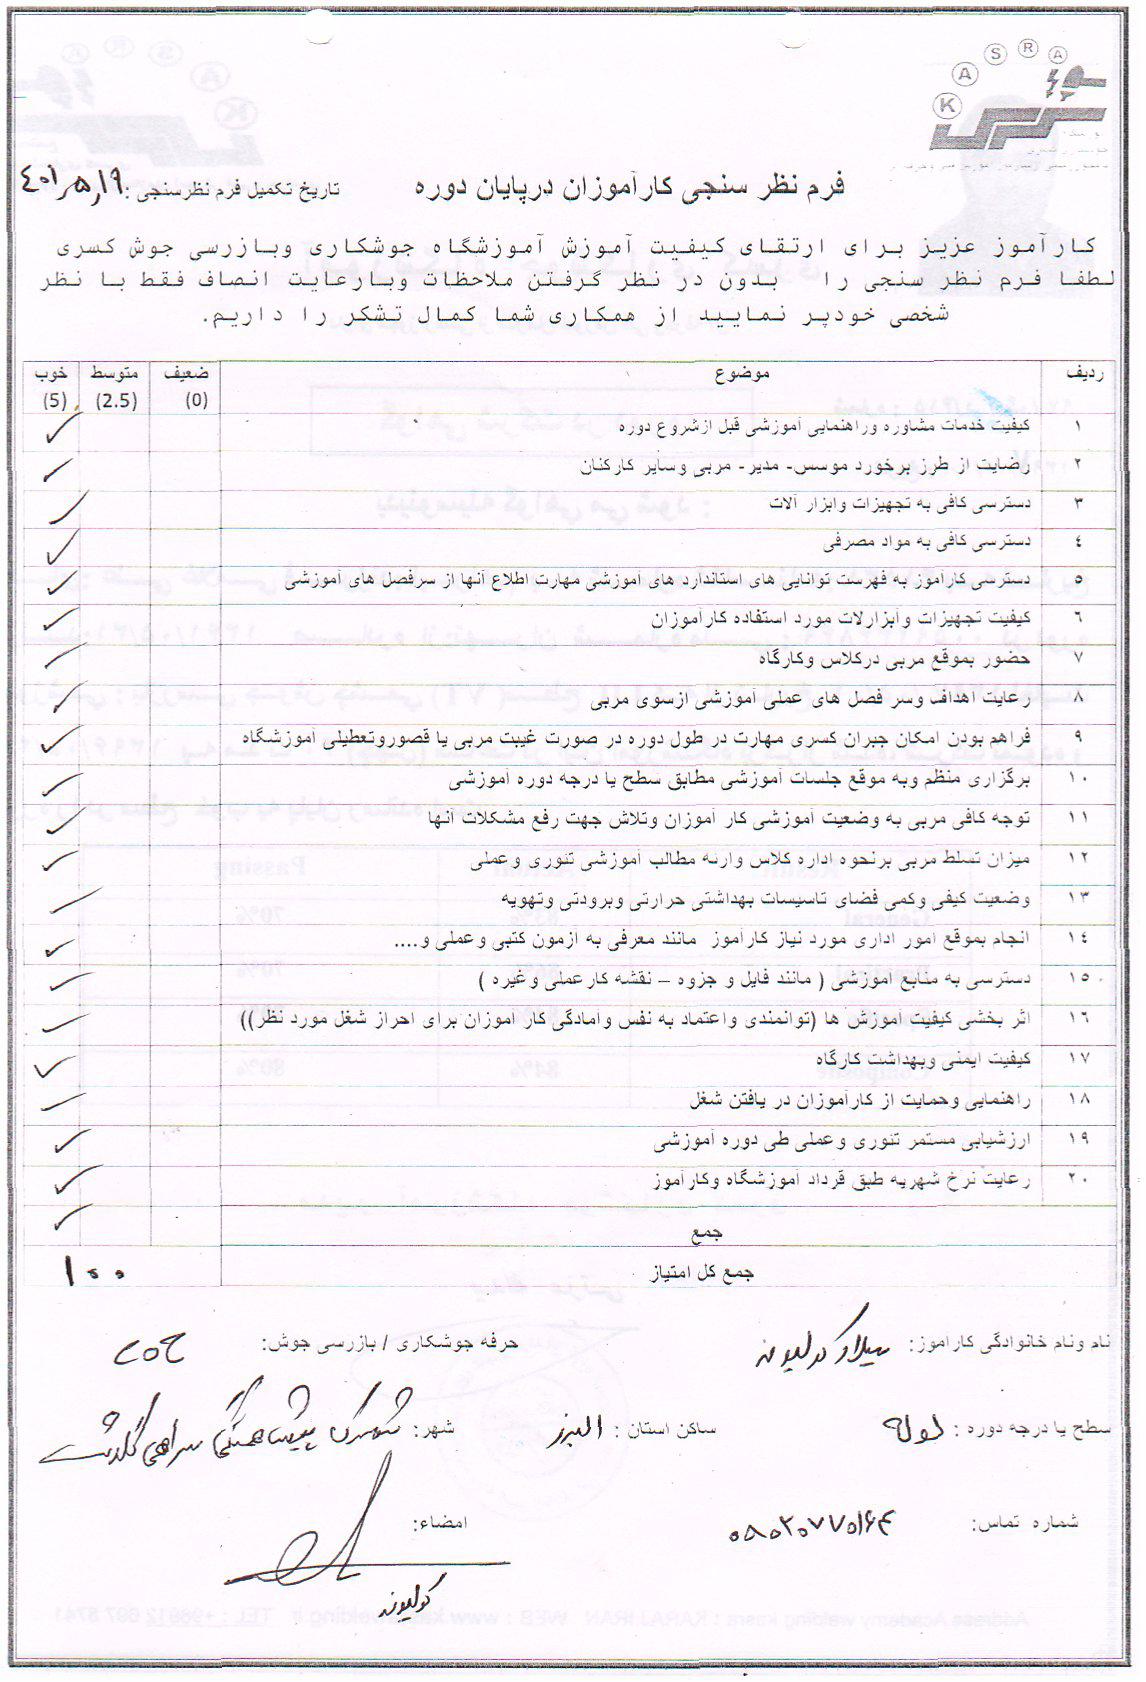 K A S R A
فرم نظر سنجی کارآموزان درپایان دوره
تاریخ تکمیل فرم نظرسنجی : ۴۰۱,۵,۱۹
کارآموز عزیز برای ارتقای کیفیت آموزش آموزشگاه جوشکاری وبازرسی جوش کسری
لطفا فرم نظر سنجی را بدون در نظر گرفتن ملاحظات وبارعایت انصاف فقط با نظر
شخصی خودپر نمایید از همکاری شما کمال تشکر را داریم.
ردیف موضوع ضعیف (0) متوسط (2.5) خوب (5)
۱ کیفیت خدمات مشاوره وراهنمایی آموزشی قبل ازشروع دوره ✓
۲ رضایت از طرز برخورد موسس- مدیر- مربی وسایر کارکنان ✓
۳ دسترسی کافی به تجهیزات وابزار آلات ✓
۴ دسترسی کافی به مواد مصرفی ✓
۵ دسترسی کارآموز به فهرست توانایی های استاندارد های آموزشی مهارت اطلاع آنها از سرفصل های آموزشی ✓
۶ کیفیت تجهیزات وابزارلات مورد استفاده کارآموزان ✓
۷ حضور بموقع مربی درکلاس وکارگاه ✓
۸ رعایت اهداف وسر فصل های عملی آموزشی ازسوی مربی ✓
۹ فراهم بودن امکان جبران کسری مهارت در طول دوره در صورت غیبت مربی یا قصوروتعطیلی آموزشگاه ✓
۱۰ برگزاری منظم وبه موقع جلسات آموزشی مطابق سطح یا درجه دوره آموزشی ✓
۱۱ توجه کافی مربی به وضعیت آموزشی کار آموزان وتلاش جهت رفع مشکلات آنها ✓
۱۲ میزان تسلط مربی برنحوه اداره کلاس وارئه مطالب آموزشی تئوری وعملی ✓
۱۳ وضعیت کیفی وکمی فضای تاسیسات بهداشتی حرارتی وبرودتی وتهویه ✓
۱۴ انجام بموقع امور اداری مورد نیاز کارآموز مانند معرفی به آزمون کتبی وعملی و.... ✓
۱۵ دسترسی به منابع آموزشی ( مانند فایل و جزوه – نقشه کارعملی وغیره ) ✓
۱۶ اثر بخشی کیفیت آموزش ها (توانمندی واعتماد به نفس وآمادگی کار آموزان برای احراز شغل مورد نظر)) ✓
۱۷ کیفیت ایمنی وبهداشت کارگاه ✓
۱۸ راهنمایی وحمایت از کارآموزان در یافتن شغل ✓
۱۹ ارزشیابی مستمر تئوری وعملی طی دوره آموزشی ✓
۲۰ رعایت نرخ شهریه طبق قرداد آموزشگاه وکارآموز ✓
جمع ✓
جمع کل امتیاز ۱۰۰
نام ونام خانوادگی کارآموز: میلاد کولیوند حرفه جوشکاری / بازرسی جوش:
سطح یا درجه دوره : لوله ساکن استان : البرز شهر:
شماره تماس: امضاء:
کولیوند